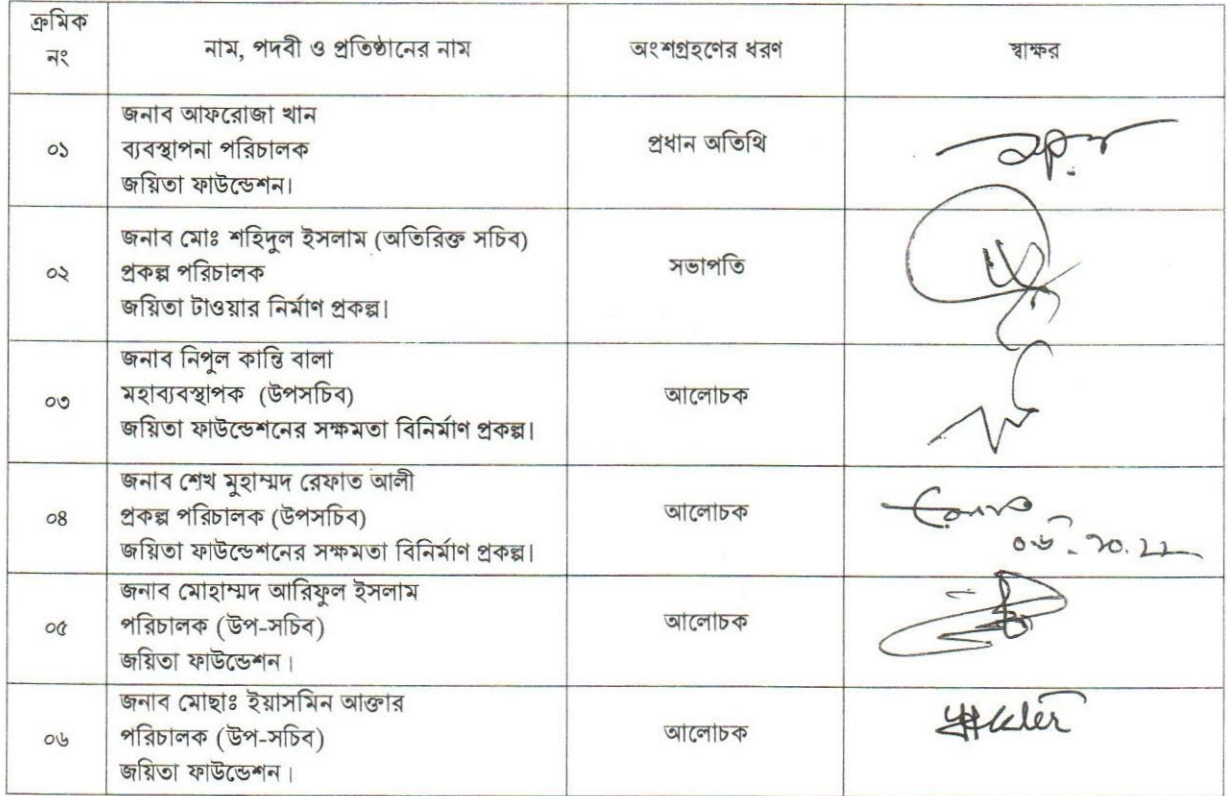 ক্রমিক
নং
নাম, পদবী ও প্রতিষ্ঠানের নাম
অংশগ্রহণের ধরণ
স্বাক্ষর
০১
জনাব আফরোজা খান
ব্যবস্থাপনা পরিচালক
জয়িতা ফাউন্ডেশন।
প্রধান অতিথি
০২
জনাব মোঃ শহিদুল ইসলাম (অতিরিক্ত সচিব)
প্রকল্প পরিচালক
জয়িতা টাওয়ার নির্মাণ প্রকল্প।
সভাপতি
০৩
জনাব নিপুল কান্তি বালা
মহাব্যবস্থাপক (উপসচিব)
জয়িতা ফাউন্ডেশনের সক্ষমতা বিনির্মাণ প্রকল্প।
আলোচক
০৪
জনাব শেখ মুহাম্মদ রেফাত আলী
প্রকল্প পরিচালক (উপসচিব)
জয়িতা ফাউন্ডেশনের সক্ষমতা বিনির্মাণ প্রকল্প।
আলোচক
০৫
জনাব মোহাম্মদ আরিফুল ইসলাম
পরিচালক (উপ-সচিব)
জয়িতা ফাউন্ডেশন।
আলোচক
০৬
জনাব মোছাঃ ইয়াসমিন আক্তার
পরিচালক (উপ-সচিব)
জয়িতা ফাউন্ডেশন।
আলোচক